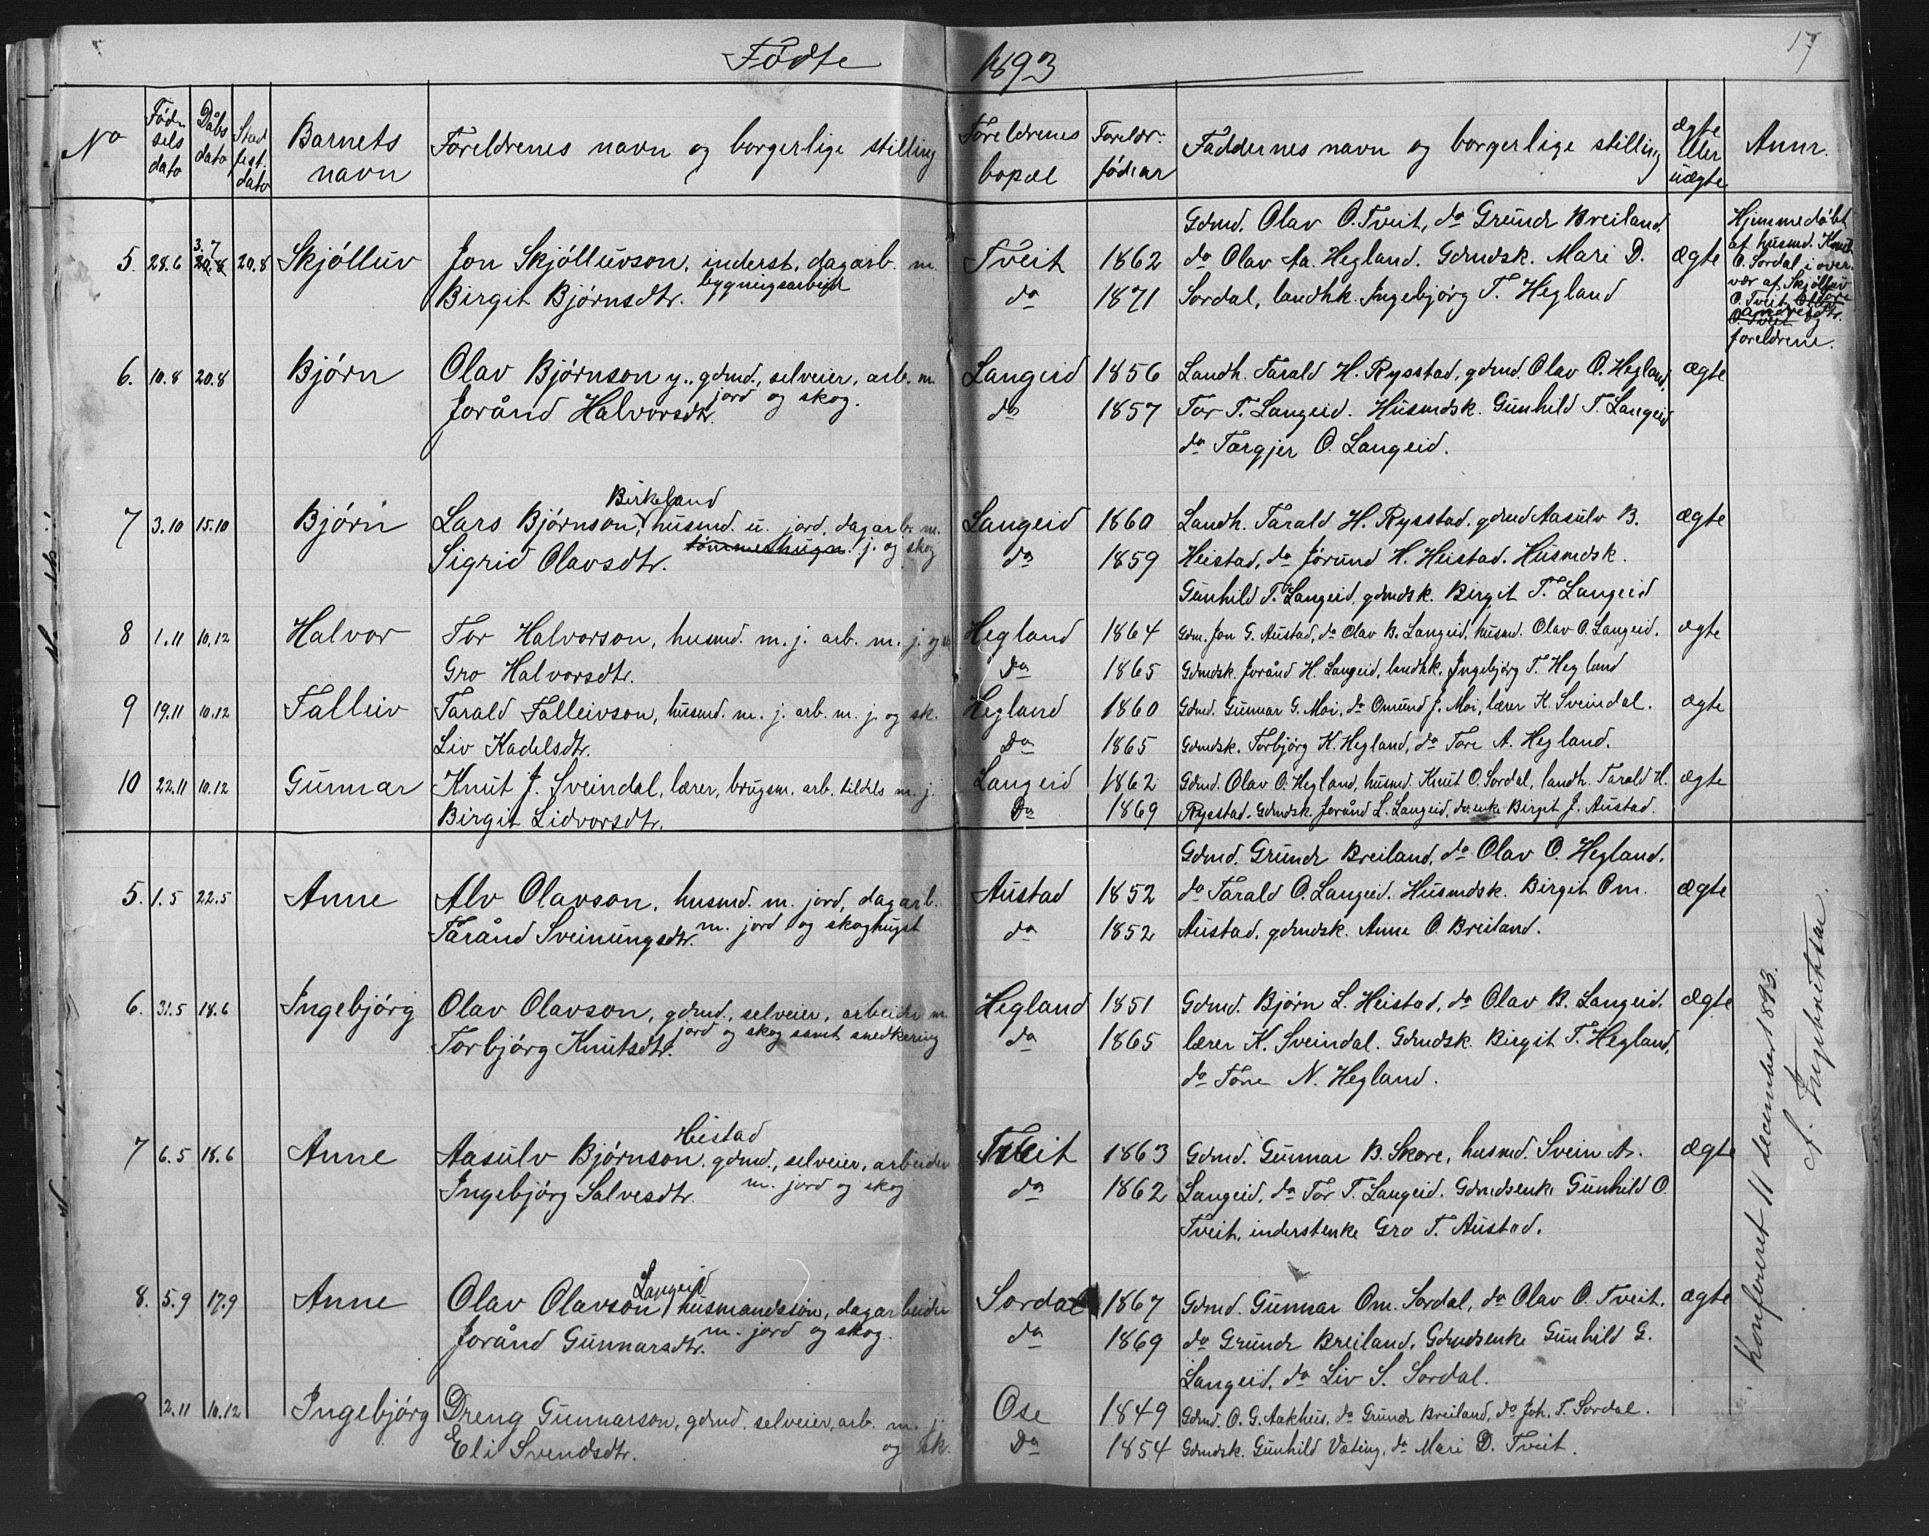 Fødte 1893
17
No
Fødselsdato
Dåbsdato
Stadfest. dato
Barnets navn
Foreldrenes navn og borgerlige stilling
Foreldrenes bopæl
Foreldr. fødear
Faddernes navn og borgerlige stilling
ægte eller uægte
Anm.
5. 28.6 3.7 20.8 20.8 Skjølluv Jon Skjølluvson, inderst, dagarb. m. bygningsarbeid Tveit 1862 ægte
Birgit Bjørnsdtr. do 1871
Gdmd. Olav O. Tveit, do Grundr Breiland,
do Olav Aa. Hegland. Gdmdsk. Mari D.
Sordal, landhk. Ingebjørg T. Hegland
Hjemmedøbt
af husmd. Knut
O. Sordal i over-
vær af Skjølluv
O. Tveit, Tore
Andresdtr.
O. Tveit og
foreldrene.
6. 10.8 20.8 Bjørn Olav Bjørnson y., gdmd., selveier, arb. m. jord og skog. Langeid 1856 ægte
Jorånd Halvorsdtr. do 1857
Landh. Tarald H. Rysstad, gdmd. Olav O. Hegland,
Tor T. Langeid. Husmdsk. Gunhild T. Langeid
do Targjer O. Langeid.
7 3.10 15.10 Bjørn Lars Bjørnson Birkeland, husmd. u. jord, dagarb. m. tømmerhugn. j. og skog Langeid 1860 ægte
Sigrid Olavsdtr. do 1859
Landh. Tarald H. Rysstad, gdmd Aasulv B.
Heistad, do Jørund H. Heistad. Husmdsk.
Gunhild T. Langeid, gdmdsk. Birgit T. Langeid
8 1.11 10.12 Halvor Tor Halvorson, husmd. m. j. arb. m. j. og sk. Hegland 1864 ægte
Gro Halvorsdtr. Do 1865
Gdm. Jon G. Austad, do Olav B. Langeid, husmd. Olav O. Langeid.
Gdmdsk. Jorånd H. Langeid, landhk. Ingebjørg T. Hegland
9 19.11 10.12 Falleiv Tarald Falleivson, husmd. m. j. arb. m. j. og sk. Hegland 1860 ægte
Liv Kadelsdtr. Do 1865
Gdmd. Gunnar G. Moi, do Omund J. Moi, lærer K. Sveindal.
Gdmdsk. Torbjørg K. Hegland, do Tore A. Hegland.
10 22.11 10.12 Gunnar Knut J. Sveindal, lærer, brugsm. arb. tildels m. j. Langeid 1862 ægte
Birgit Lidvorsdtr. Do 1869
Gdmd. Olav O. Hegland, husmd. Knut O. Sordal, landh. Tarald H.
Rysstad. Gdmdsk. Jorånd L. Langeid, do enke Birgit J. Austad.
5. 1.5 22.5 Anne Alv Olavson, husmd. m. jord, dagarb. m. jord og skoghugst Austad 1852 ægte
Tarånd Sveinungsdtr. do 1852
Gdmd. Grundr Breiland, do Olav O. Hegland.
do Tarald O. Langeid. Husmdsk. Birgit Om.
Austad, gdmdsk. Anne O. Breiland.
6. 31.5 18.6 Ingebjørg Olav Olavson, gdmd., selveier, arbeider m. jord og skog samt snedkering Hegland 1851 ægte
Torbjørg Knutsdtr. do 1865
Gdmd. Bjørn L. Heistad, do Olav B. Langeid.
lærer K. Sveindal. Gdmdsk. Birgit T. Hegland,
do Tone N. Hegland.
7 6.5 18.6 Anne Aasulv Bjørnson Heistad gdmd., selveier, arbeider m. jord og skog Tveit 1863 ægte
Ingebjørg Salvesdtr. do 1862
Gdmd. Gunnar B. Skore, husmd. Svein A.
Langeid, do Tor T. Langeid. Gdmdsenke Gunhild O.
Tveit, inderstenke Gro T. Austad.
8. 5.9 17.9 Anne Olav Olavson Langeid, husmandssøn, dagarbeider m. jord og skog. Sordal 1867 ægte
Jorånd Gunnarsdtr. do 1869
Gdmd. Gunnar Om. Sordal, do Olav O. Tveit.
do Grundr Breiland. Gdmdsenke Gunhild G.
Langeid, do Liv S. Sordal.
2.11 10.12 Ingebjørg Dreng Gunnarson, gdmd. selveier, arb. m. j. og sk. Ose 1849
Eli Svendsdtr. Do 1854
Gdmd. O. G. Aakhus, do Grundr Breiland, do Joh. T. Sordal.
Gdmdsk. Gunhild Vating, do Mari D. Tveit.
Konfereret 11 december 1893.
A. Ingebretsen.